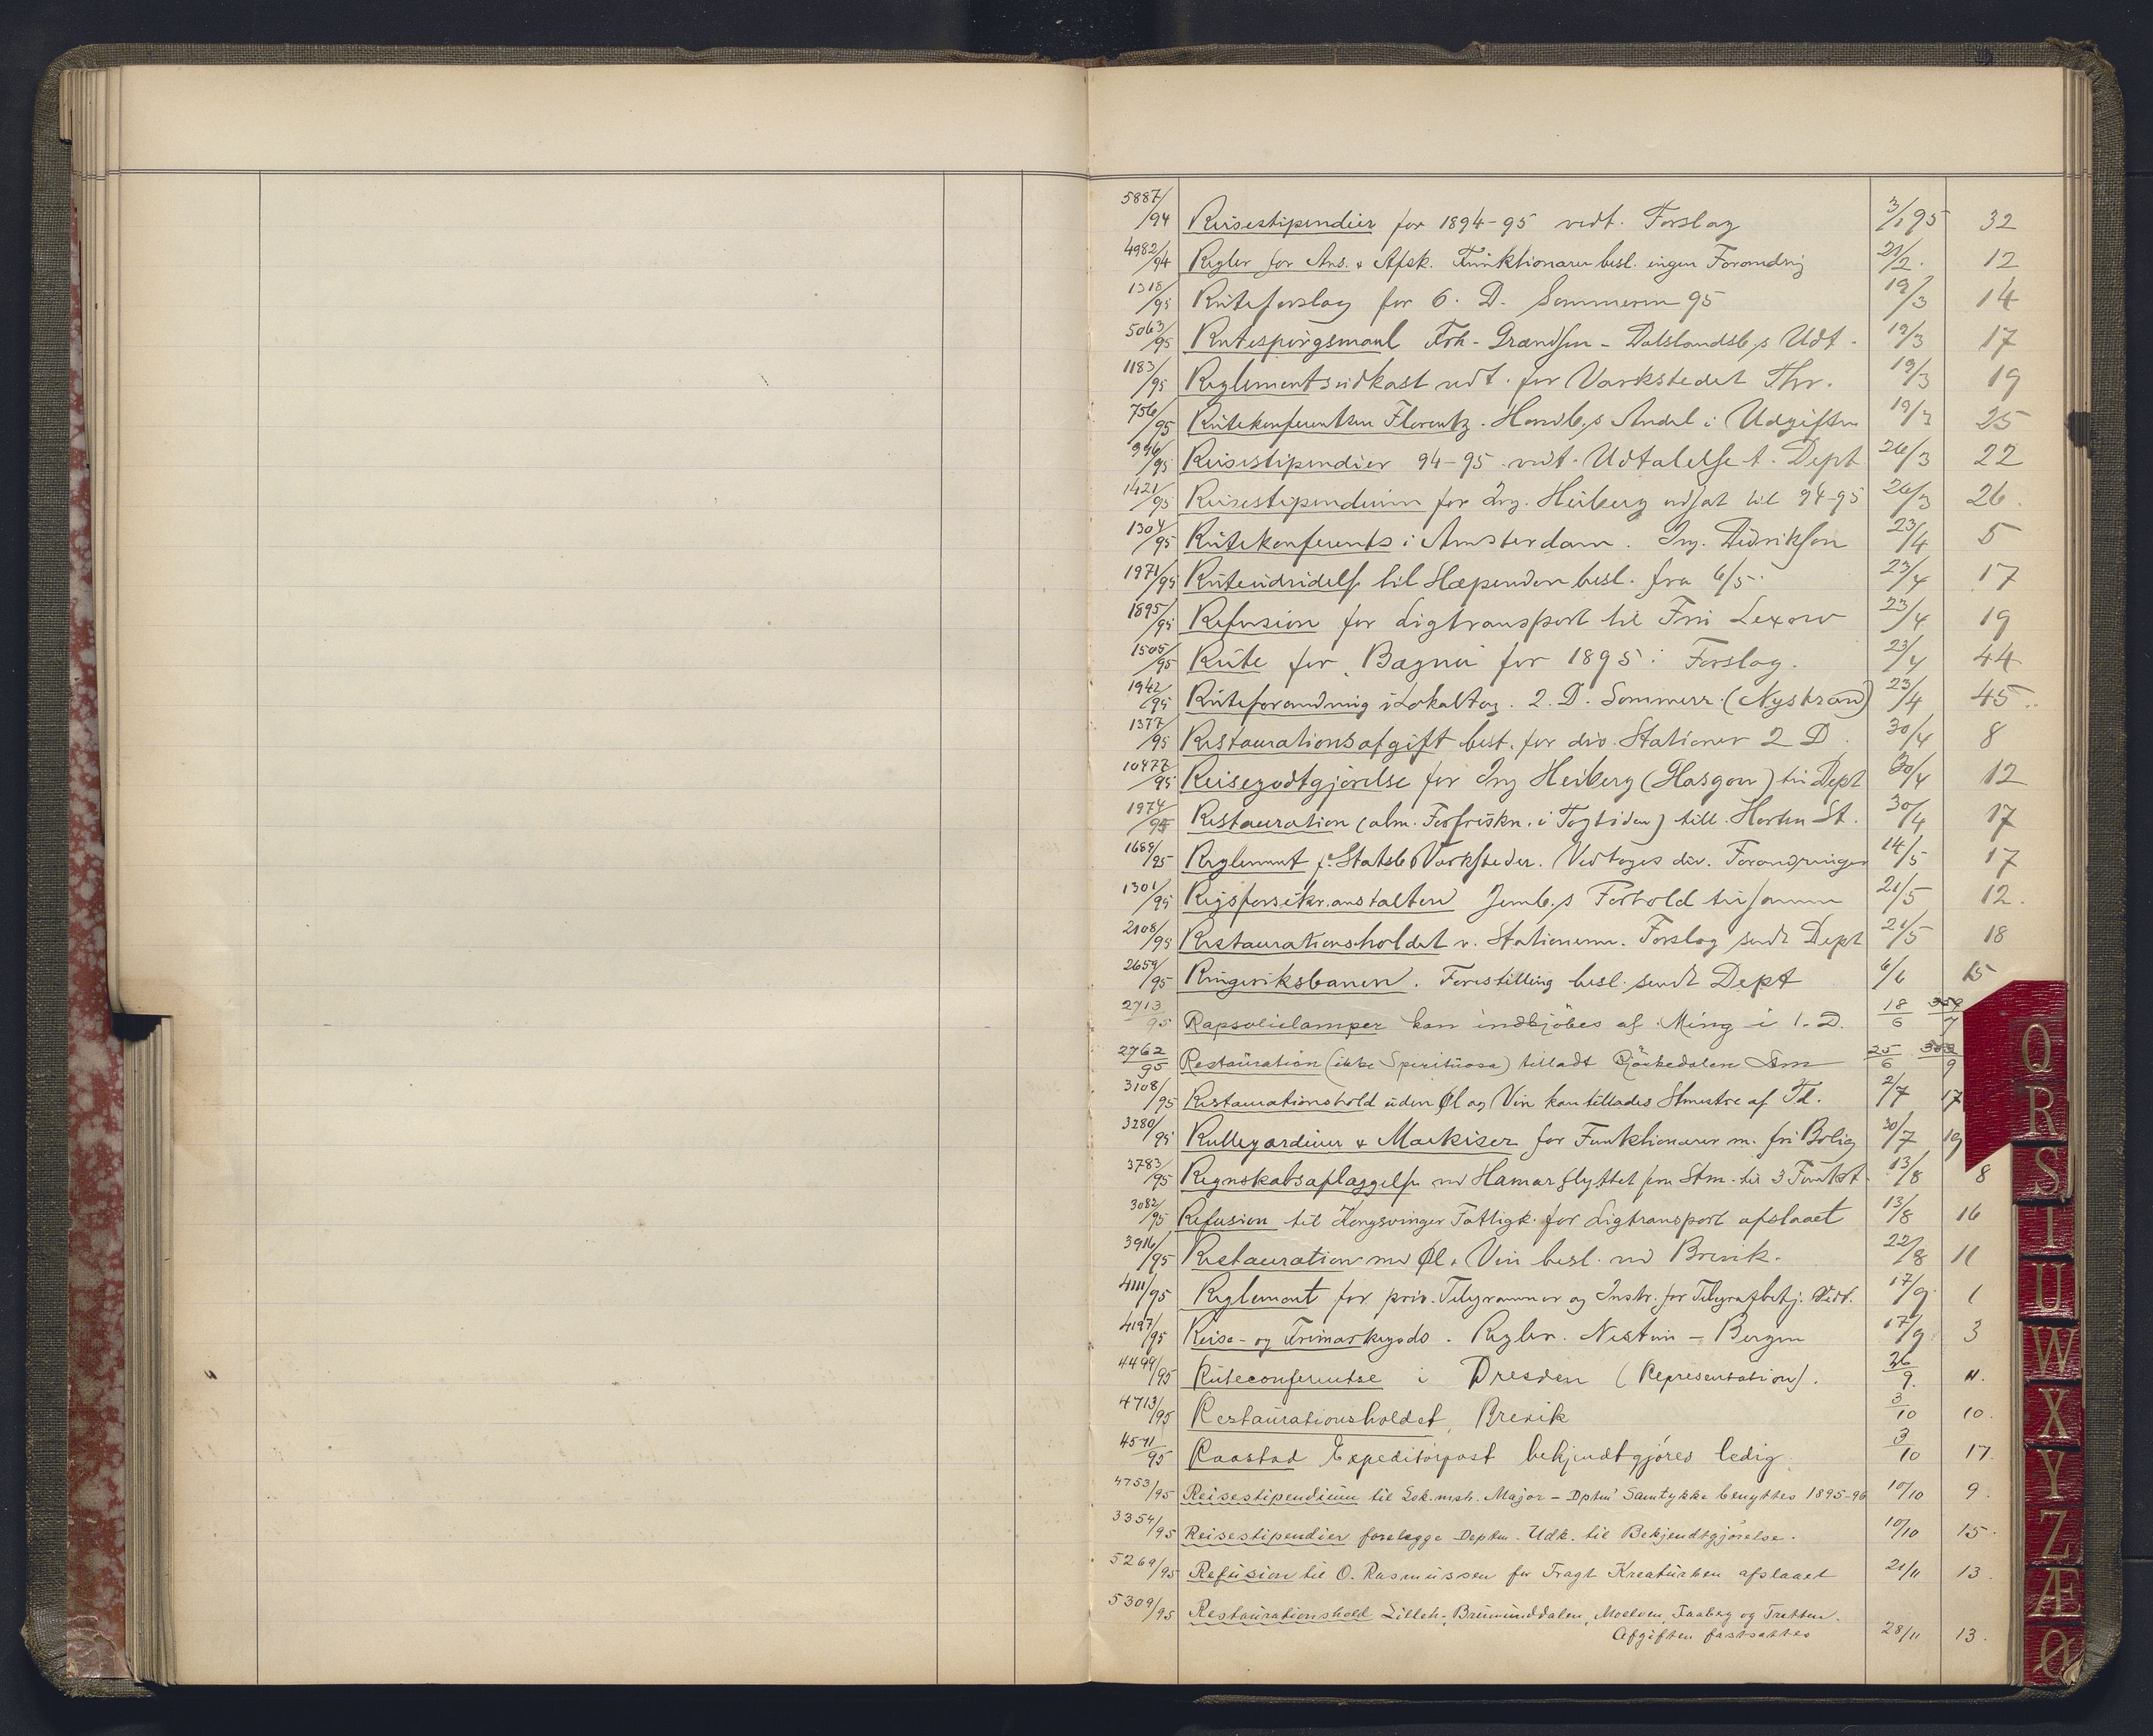 5887/94 Reisestipendier for 1894-95 vedt. Forslag 3/1 95 32
4982/94 Regler for Ans. & Afsk. Funktionærer besl. ingen Forandrig 21/2. 12
1318/95 Ruteforslag for 6. D. Sommeren 95 19/3 14
5063/95 Rutespørgsmaal Frh - Grændsen - Dalslandsb,s Udt. 19/3 17
1183/95 Reglementsudkast vdt. for Værkstedet Thr. 19/3 19
756/95 Rutekonferentsen Florentz. Hovedb,s Andel i Udgiften 19/3 25
996/95 Reisestipendier 94-95 vedt. Udtalelse t. Dept 26/3 22
1421/95 Reisestipendium for Ing. Heiberg udsat til 94-95 26/3 26.
1304/95 Rutekonferents i Amsterdam. Ing. Didriksen 23/4 5
1971/95 Ruteudvidelse til Slependen besl. fra 6/5. 23/4 17
1895/95 Refusion for Ligtransport til Fru Lexow 23/4 19
1505/95 Rute for Bægnei for 1895: Forslag. 23/4 44
1942/95 Ruteforandring i Lokaltog. 2. D. Sommerr. (Nystrand) 23/4 45
1377/95 Restaurationsafgift best. for div. Stationer 2 D. 30/4 8
10477/95 Reisegodtgjørelse for Ing Heiberg (Glasgow) til Dept 30/4 12
1974/95 Restauration (alm. Forfriskn. i Togtiden) till. Horten St. 30/4 17
1689/95 Reglement f. Statsb Værksteder. Vedtages div. Forandringer 14/5 17
1301/95 Rigsforsikr.anstalten Jernb.s Forhold til samme 21/5 12.
2108/95 Restaurationsholdet v. Stationerne. Forslag sendt Dept 21/5 18
2659/95 Ringeriksbanen. Forestilling besl. sendt Dept 6/6 15
2713/95 Rapsolielamper kan indkjöbes af Ming i 1. D. 18/6
2762/95 Restauration (ikke Spirituosa) tilladt Björkedalen Stm 25/6 9
3108/95 Restaurationshold uden Øl og Vin kan tillades Stmestre af Td. 2/7 17
3280/95 Rullegardiner & Markiser for Funktionærer m. fri Bolig 30/7 19
3783/95 Regnskabsaflæggelse ved Hamar flyttet fra Stm. til 3 Funkt. 13/8 8
3082/95 Refusion til Kongsvinger Fattigk. for Ligtransport afslaaet 13/8 16
3916/95 Restauration med Øl & Vin besl. ved Brevik. 22/8 11
4111/95 Reglement for priv. Telegrammer og Instr. for Telegrafbetj. Vedt. 17/9 1
4197/95 Reise- og Frimærkegods. Regler. Nesttun - Bergen 17/9 3
4499/95 Ruteconferentse i Dresden (Representation). 26/9. 11.
4713/95 Restaurationsholdet, Brevik 3/10 10.
4571/95 Raastad Expeditörpost bekjendtgjöres ledig. 3/10 17.
4753/95 Reisestipendium til Lok.mst. Major - Dptm' Samtykke benyttes 1895-96 10/10 9.
3354/95 Reisestipendier forelægge Deptm. Udk. til Bekjendtgjörelse. 10/10 15.
5269/95 Refusion til O. Rasmussen for Fragt Kreaturben afslaaet 21/11 13.
5309/95 Restaurationshold Lilleh., Brumunddalen, Moelven, Faaberg og Tretten.
Afgiften fastsættes 28/11 13.
Q
R
S
T
U
W
X
Y
Z
Æ
Ø